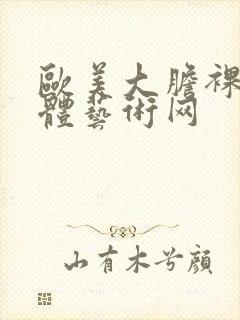 歐美大膽裸
體藝術网
山有木兮顔